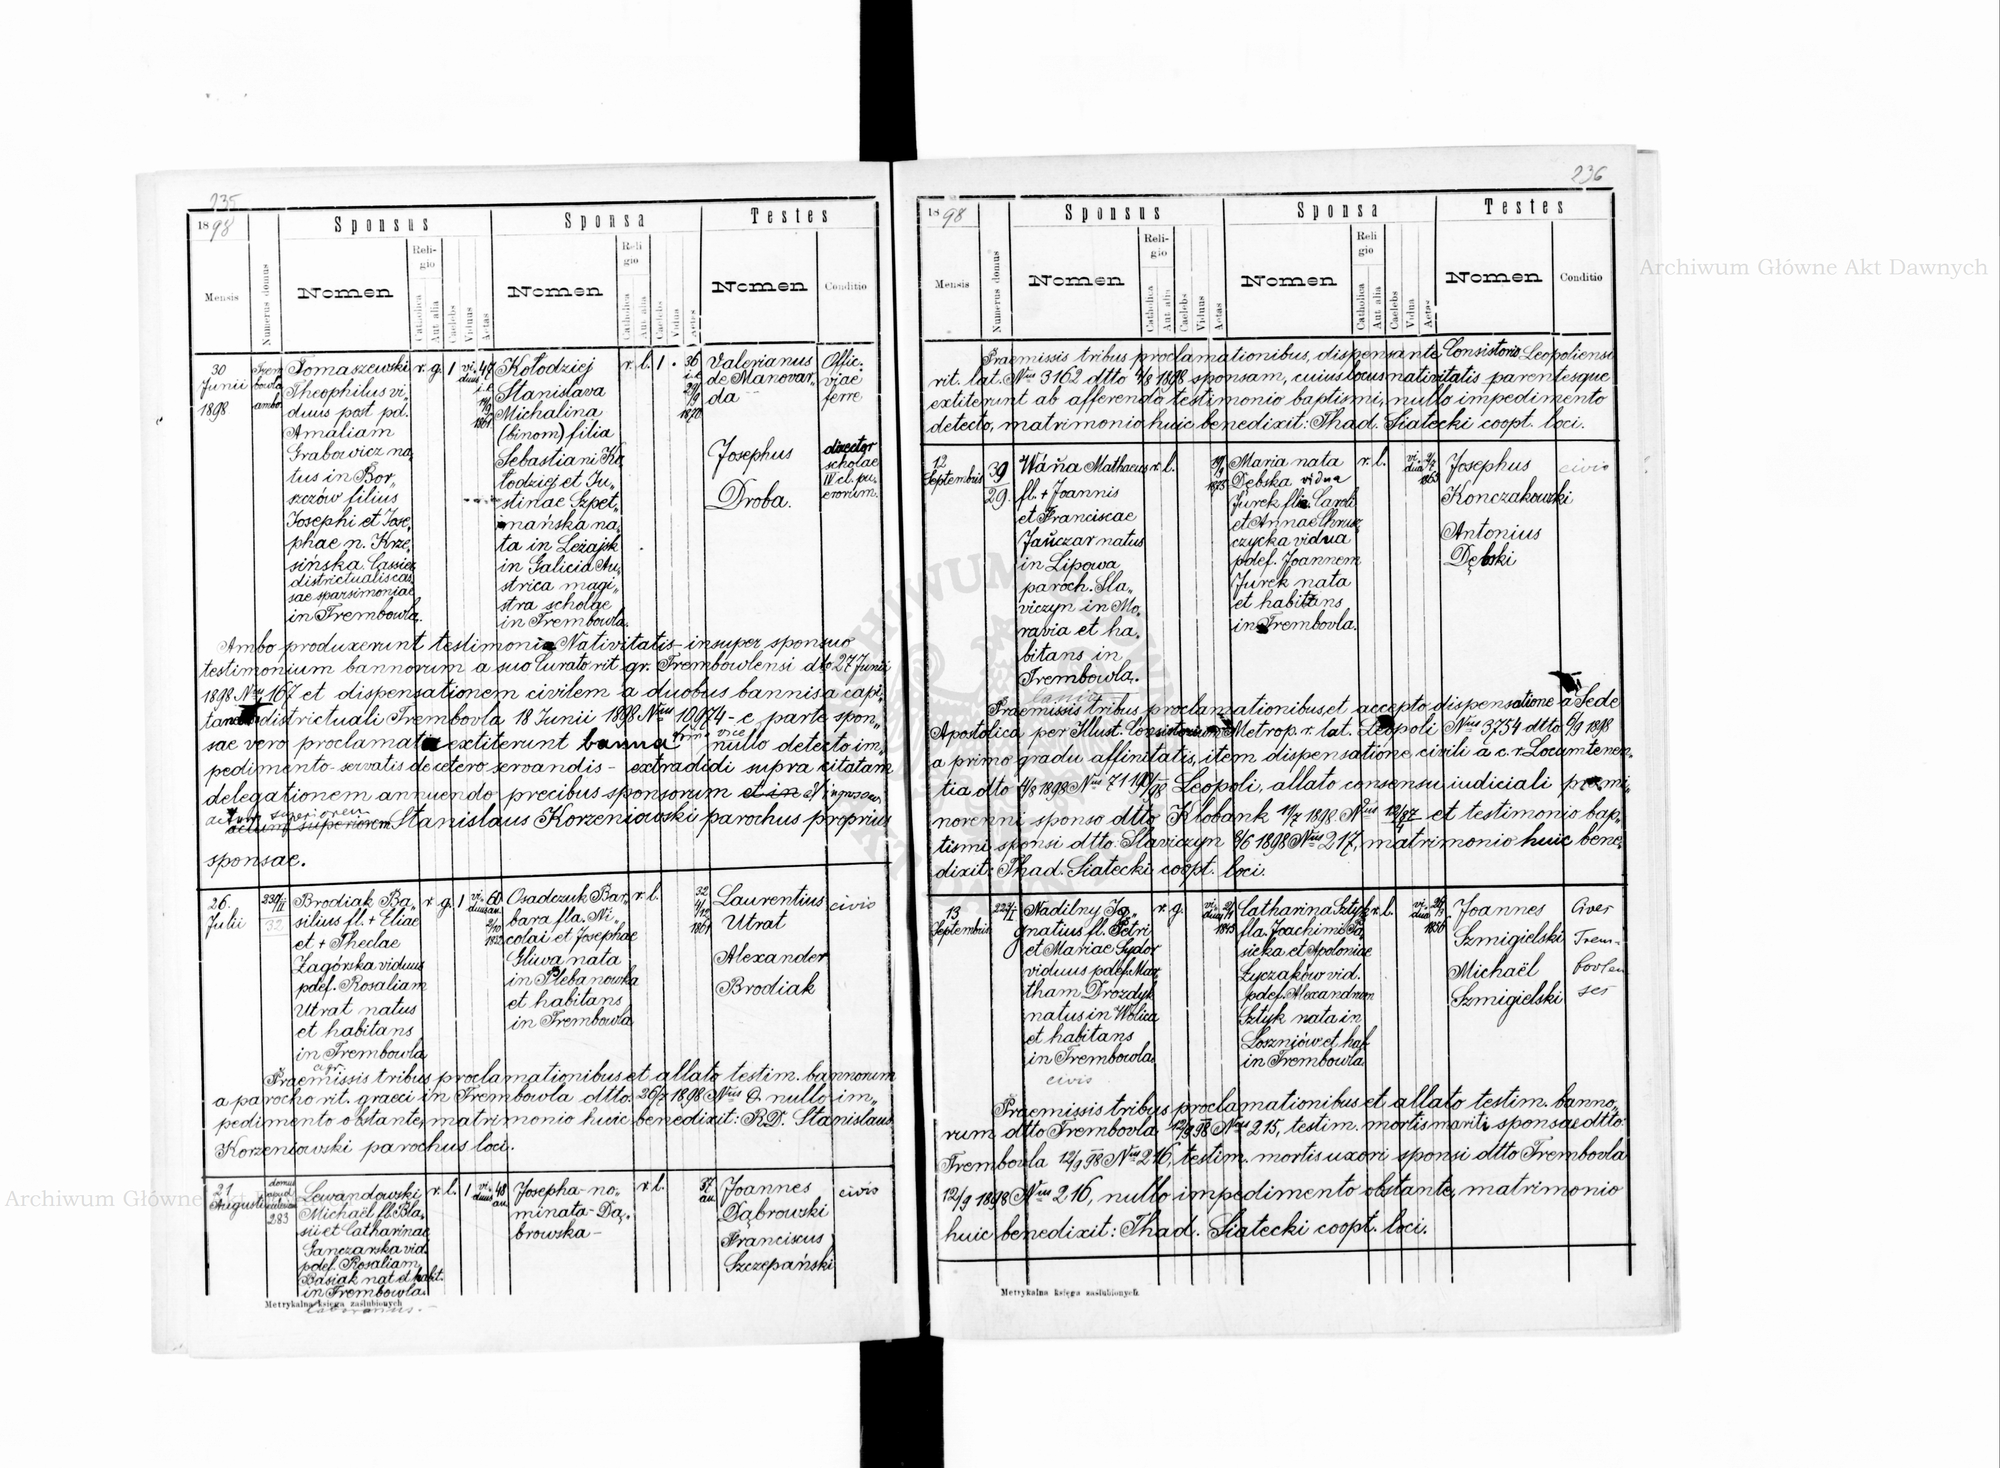 235
1898
Sponsus
Sponsa
Testes
Mensis
Numerus domus
Nomen
Religio
Catholica
Aut alia
Caelebs
Viduus
Aetas
Nomen
Religio
Catholica
Aut alia
Caelebs
Vidua
Aetas
Nomen
Conditio
30
Junii
1898
Trem
bowla
ambo
Tomaszewski
Theophilus vi„
duus post pd.
Amaliam
Grabowicz na„
tus in Bor„
szczów filius
Josephi et Jose„
phae n. Krze„
sińska Cassier
districtualis cas„
sae sparsimoniae
in Trembowla.
r. g. 1 vi„
duus
47
Kołodziej
Stanislava
Michalina
(binom) filia
Sebastiani Ko„
łodziej et Ju„
stinae Szpet„
mańska na„
ta in Leżajsk
in Galicia Au„
strica magi„
stra scholae
in Trembowla.
r. l. 1 .
36
i.e.
29/9
1870
Valerianus
de Manovar„
da
Josephus
Droba.
Offic„
viae
ferre
director
scholae
IV cl. pu„
erorum.
Ambo produxerunt testimonia Nativitatis insuper sponsus
testimonium bannorum a suo Curato rit. gr. Trembowlensi dto 27 Junii
1898 Nus 167 et dispensationem civilem a duobus bannis a capi„
districtuali Trembovla 18 Junii 1898 Nus 10974 - e parte spon„
sae vero proclamata extiterunt banna vice nullo detecto im„
pedimento - servatis de cetero servandis - extradidi supra citatam
delegationem annuendo precibus sponsorum et in
actum superiorem
actum superiorem Stanislaus Korzeniowski parochus proprius
sponsae.
26
Julii
230/II
32
Brodiak Ba„
silius fl. + Eliae
et + Theclae
Zagórska viduus
pdef. Rosaliam
Utrat natus
et habitans
in Trembowla
r. g. 1 vi„
duus
60
an.
2/10
Osadczuk Bar„
bara fla. Ni„
colai et Josephae
Gliwa nata
in Plebanowka
et habitans
in Trembowla
r. l.
32
4/12
Laurentius
Utrat
Alexander
Brodiak
civis
Praemissis tribus proclamationibus et allato testim. bannorum
a parocho rit. graeci in Trembowla dtto. 26/7 1898 Nus 0. nullo im„
pedimento obstante, matrimonio huic benedixit: R.D. Stanislaus
Korzeniowski parochus loci.
21
Augusti
domus
apud
283
Lewandowski
Michaël fl. Bla„
sii et Catharinae
Ganczarska vid.
pdef. Rosaliam
Basiak nat et habit.
in Trembowla.
r. l. 1 vi„
duus
48
an.
Josepha no„
minata Dą„
browska -
r. l.
37
an.
Joannes
Dąbrowski
Franciscus
Szczepański
civis
Metrykalna księga zaślubionych
236
1898
Sponsus
Sponsa
Testes
Mensis
Numerus domus
Nomen
Religio
Catholica
Aut alia
Caelebs
Viduus
Aetas
Nomen
Religio
Catholica
Aut alia
Caelebs
Vidua
Aetas
Nomen
Conditio
Praemissis tribus proclamationibus, dispensante Consistorio Leopoliensi
rit. lat. Nus 3162 dtto 4/8 1898 sponsam, cuius locus nativitatis parentesque
extiterunt ab afferendo testimonio baptismi, nullo impedimento
detecto, matrimonio huic benedixit: Thad. Siatecki coopt. loci.
12
Septembris
39
29.
Wáňa Mathaeus
fl. + Joannis
et Franciscae
Jančzar natus
in Lipowa
paroch. Sla„
viczyn in Mo„
ravia et ha„
bitans in
Trembowla.
r. l.
Maria nata
Dębska vidua
Jurek fla. Caroli
et Annae Chrusz
czycka vidua
pdef. Joannem
Jurek nata
et habitans
in Trembowla.
r. l. vi„
dua
1863
Josephus
Konczakowski
Antonius
Dębski
civis
Praemissis tribus proclamationibus, et accepto dispensatione a Sede
Apostolica per Illust. Consistorium Metrop. r. lat. Leopoli Nus 3754 dtto 6/9 1898
a primo gradu affinitatis, item dispensatione civili a c. r. Locumtenen„
tia dto 4/8 1898 Nus Leopoli, allato consensu iudiciali
norenni sponso dtto Klobank 11/7 1898 Nus et testimonio bap„
tismi sponsi dtto: Slaviczyn 8/6 1898 Nus 217, matrimonio huic bene„
dixit: Thad. Siatecki coopt. loci.
13
Septembris
224/I
Nadilny Ig„
gnatius fl. Petri
et Mariae Sydor
viduus pdef. Mar
tham Drozdyk
natus in Wolica
et habitans
in Trembowla.
civis
r. g. vi„
duus
Catharina Sztyk
fla. Joachimi Pa„
siека et Apoloniae
Łyczaków vid.
pdef. Alexandrum
Sztyk nata in
Loszniów et hab
in Trembowla.
r. l. vi„
dua
1856
Joannes
Szmigielski
Michaël
Szmigielski
Cives
Trem„
bovlen
ses
Praemissis tribus proclamationibus et allato testim. banno„
rum dtto Trembovla 12/9 98 Nus 215, testim. mortis mariti sponsae dtto:
Trembovla 12/9 98 Nus 216, testim. mortis uxori sponsi dtto Trembovla
12/9 1898 Nus 216, nullo impedimento obstante, matrimonio
huic benedixit: Thad. Siatecki coopt. loci.
Metrykalna księga zaślubionych.
Archiwum Główne Akt Dawnych
Archiwum Główne Akt Dawnych